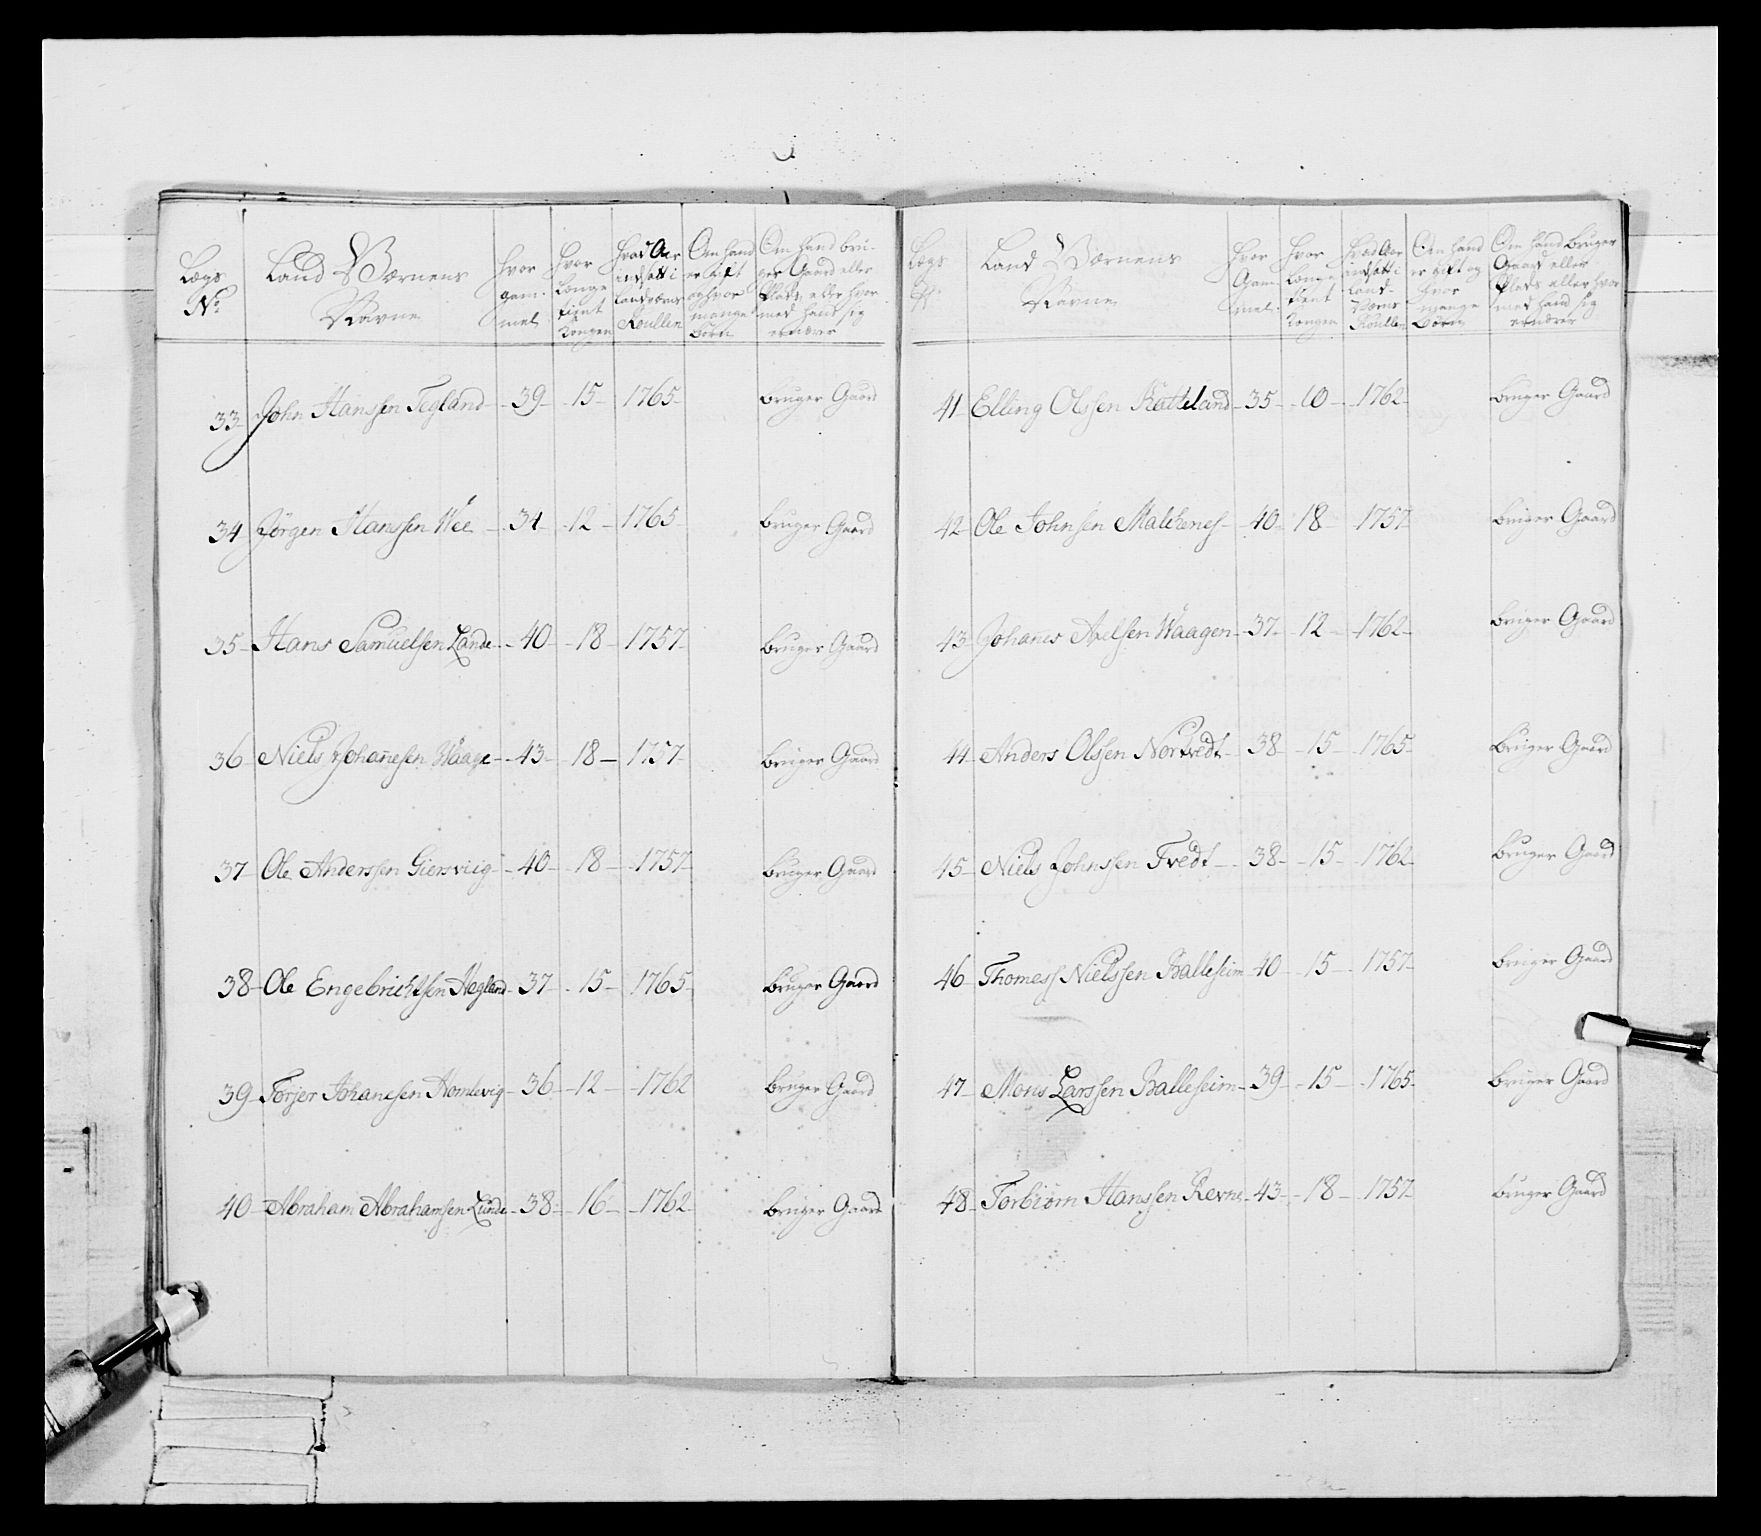 Lægs No
Land Wærnens Navne
Hvor gam- mel
Hvor Længe tient Kongen
Hvad Aar indsatt i Landværns Roullen
Om hand er Gift og hvor mange Børn
Om hand bru- ger Gaard eller Plads, eller hvor med hand sig ernærer
33 John Hanssen Tegland 39 15 1765 bruger Gaard
34 Jørgen Hanssen Wee 34 12 1765 bruger Gaard
35 Hans Samuelsen Lande 40 18 1757 bruger Gaard
36 Niels Johanesen Waage 43 18 1757 bruger Gaard
37 Ole Anderssen Giersviig 40 18 1757 bruger Gaard
38 Ole Engebrichtsen Hegland 37 15 1765 bruger Gaard
39 Torjer Johanesen Homlevig 36 12 1762 bruger Gaard
40 Abraham Abrahamsen Lunde 38 16 1762 bruger Gaard
Lægs No
Land Wærnens Navne
Hvor Gam- mel
Hvor Længe tient Kongen
Hvad Aar indsatt i Land- Værns Roullen
Om hand er Gift og hvor mange Børn
Om hand bruger Gaard eller Plads eller hvor med hand sig ernærer
41 Elling Olssen Katteland 35 10 1762 bruger Gaard
42 Ole Johnsen Malchenes 40 18 1757 bruger Gaard
43 Johanes Axelsen Waagen 37 12 1762 bruger Gaard
44 Anders Olssen Nortvedt 38 15 1765 bruger Gaard
45 Niels Johnssen Tvedt 38 15 1762 bruger Gaard
46 Thomes Nielssen Balleseim 40 15 1757 bruger Gaard
47 Mons Larssen Balleseim 39 15 1765 bruger Gaard
48 Torbiørn Hanssen Revne 43 18 1757 bruger Gaard